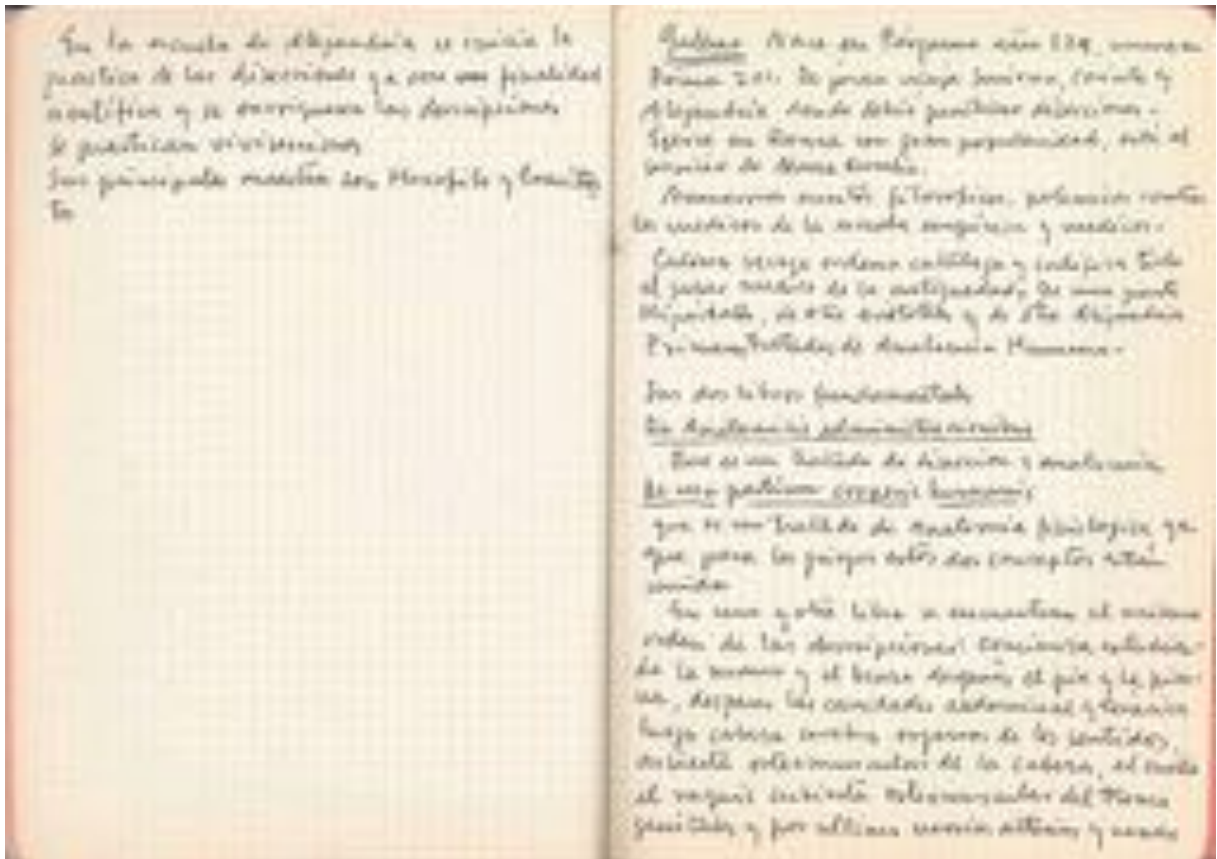 En la escuela de Alejandría se inicia la
practica de las disecciones ya con una finalidad
cientifica y se enriquecen las descripciones
Se practican vivisecciones
Sus principales maestros son Herofilo y
Galeno Nace en Pergamo año 129, muere en
Roma 201. De joven viaja Corinto y
Alejandria donde debio practicar disecciones.
Ejerce en Roma con gran popularidad, está al
servicio de Marco Aurelio.
escritos filosoficos, polemicos contra
los medicos de la escuela empirica y medicos.
Galeno recoge ordena y todo
el saber medico de la antiguedad, de una parte
Hipocrates, de otra Aristoteles y de otra Alejandria
Primeros Tratados de Anatomia Humana.
Sus dos libros fundamentales
De Anatomicis administrationibus
Que es un tratado de diseccion y anatomia
De usu partium corporis humanis
que es un tratado de anatomia fisiologica, ya
que para los griegos estos dos conceptos están
unidos
En uno y otro libro se encuentran el mismo
orden de las descripciones: comienza estudian-
do la mano y el brazo después el pie y la pier-
na, despues las cavidades abdominal y toracica
luego cabeza cerebro organos de los sentidos,
de la cabeza, el cuello
el raquis del tronco
genitales y por ultimo venas arterias y